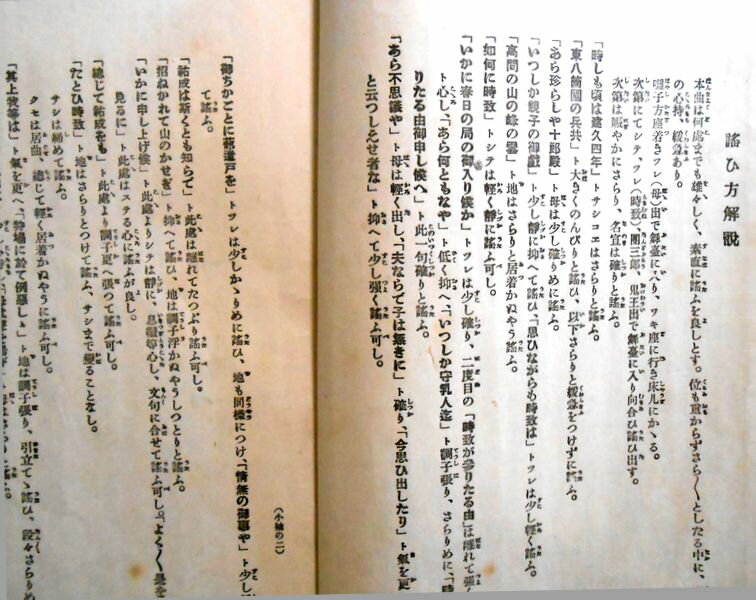 謠ひ方解説
本曲は何處までも雄々しく、素直に謠ふを良しとす。位も重からずさら〳〵としたる中に、
の心持、緩急あり。
囃子方座着きフレ(母)出で舞臺に入り、ワキ座に行き床几にかゝる。
次第にてシテ、フレ(時致)、團三郎、鬼王出で舞臺に入り向合ひ謠ひ出す。
次第は賑やかにさらり、名宣は確りと謠ふ。
「時しも頃は建久四年」トサシコヱはさらりと謠ふ。
「東八箇國の兵共」ト大きくのんびりと謠ひ、以下さらりと緩急をつけずに謠ふ。
「あら珍らしや十郎殿」ト母は少し確りめに謠ふ。
「いつしか親子の御戯」ト少し靜に抑へて謠ひ、「思ひながらも時致は」トツレは少し輕く謠ふ。
「高間の山の峰の雲」ト地はさらりと居着かぬやう謠ふ。
「如何に時致」トシテは輕く靜に謠ふ可し。
「いかに春日の局の御入り候か」トツレは少し確り、二度目の「時致が參りたる由」は離れて強く
ト心し、「あら何ともなや」ト低く抑へ、「いつしか守乳人迄」ト調子張り、さらりめに、「時
りたる由御申し候へ」ト此一句確りと謠ふ。
「あら不思議や」ト母は輕く出し、「夫ならで子は無きに」ト確り、「今思ひ出したり」ト氣を更
と云つしえせ者な」ト抑へて少し强く謠ふ可し。
(小袖の二)
「御ちかごとに莪蓬戸を」トツレは少しかゝりめに謠ひ、地も同樣につけ「情無の御事や」ト少し
て謠ふ。
「祐成は斯くとも知らで」ト此處は離れてたつぷり謠ふ可し。
「招ぬかれて山のかせぎ」ト抑へて謠ひ、地は調子浮かぬやうしつとりと謠ふ。
「いかに申し上げ候」ト此處よりシテは靜に、息繼等心し、文句に合せて謠ふ可し。「よく〳〵
見るに」ト此處はステる心に謠ふが良し。
「總じて祐成をも」ト此處より調子更へ張つて謠ふ可し。
「たとひ時致」ト地はさらりとつけて謠ふ、サシまで變ることなし。
サシは締めて謠ふ。
クセは居曲、總じて輕く居着かぬやうに謠ふ可し。
「其上我等は」ト氣を更へ、「狩場に於て例惡しゝ」ト地は調子張り、引立てゝ謠ひ、段々さらりめ